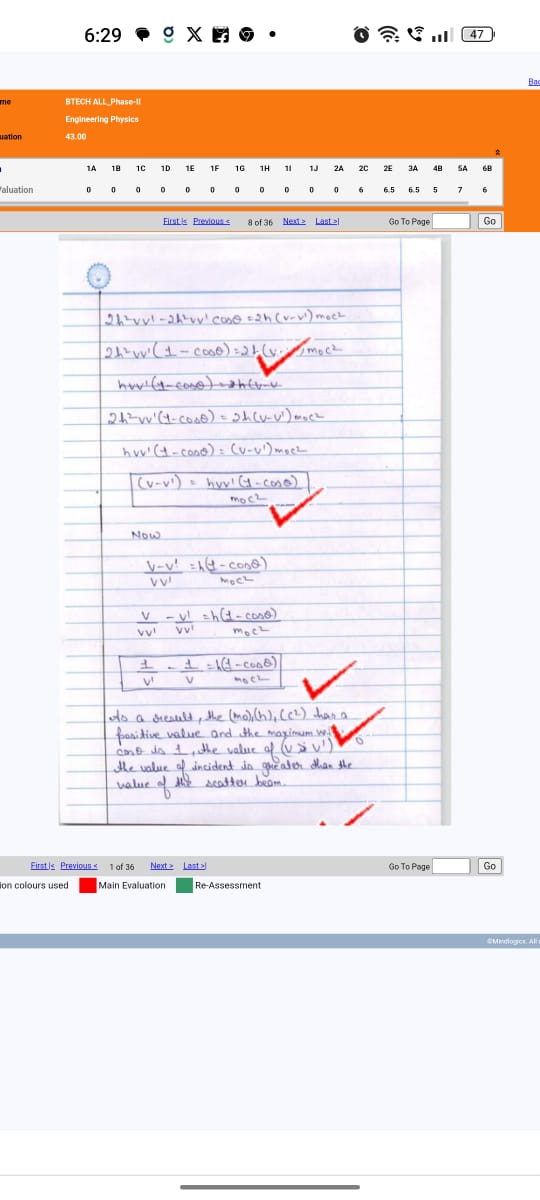 6:29
47
Bac
me
BTECH ALL_Phase-II
Engineering Physics
uation
43.00
1A 1B 1C 1D 1E 1F 1G 1H 1I 1J 2A 2C 2E 3A 4B 5A 6B
aluation 0 0 0 0 0 0 0 0 0 0 0 6 6.5 6.5 5 7 6
First |< Previous < 8 of 36 Next > Last >| Go To Page Go
2h²vv' - 2h²vv' cosθ = 2h (v-v') m₀c²
2h²vv' (1 - cosθ) = 2h (v- ) m₀c²
hvv' (1-cosθ) = 2h(v-v
2h²vv' (1-cosθ) = 2h(v-v') m₀c²
hvv' (1-cosθ) = (v-v') m₀c²
(v-v') = hvv' (1-cosθ)
m₀c²
Now
v-v' = h(1-cosθ)
vv' m₀c²
v - v' = h(1-cosθ)
vv' vv' m₀c²
1 - 1 = h(1-cosθ)
v' v m₀c²
As a result, the (m₀),(h),(c²) has a
positive value and the maximum
cosθ is 1, the value of (v > v')
the value of incident is greater than the
value of the scatter beam.
First |< Previous < 1 of 36 Next > Last >| Go To Page Go
ion colours used Main Evaluation Re-Assessment
©Mindlogicx. All